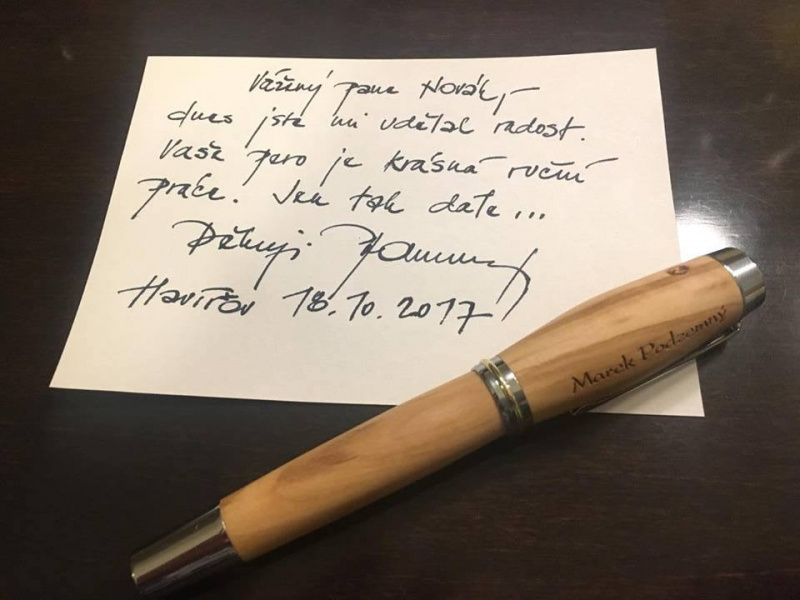 Vážený pane Novák,
dnes jste mi udělal radost.
Vaše pero je krásná ruční
práce. Jen tak dále...
Děkuji
Havířov 18.10.2017
Marek Podzemný